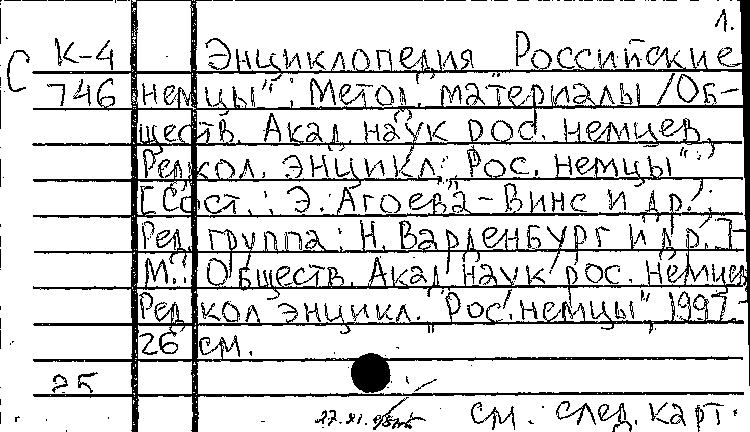 1.
С К-4 Энциклопедия Российские
746 немцы" : Метод. материалы / Об-
ществ. Акад. наук рос. немцев,
Редкол. энцикл. "Рос. немцы" ;
[Сост.: Э. Агоева-Винс и др. ;
Ред. группа: Н. Варденбург и др.]-
М.: Обществ. Акад. наук рос. немцев
Редкол. энцикл. "Рос. немцы", 1997.-
26 см.
25
см. след. карт.